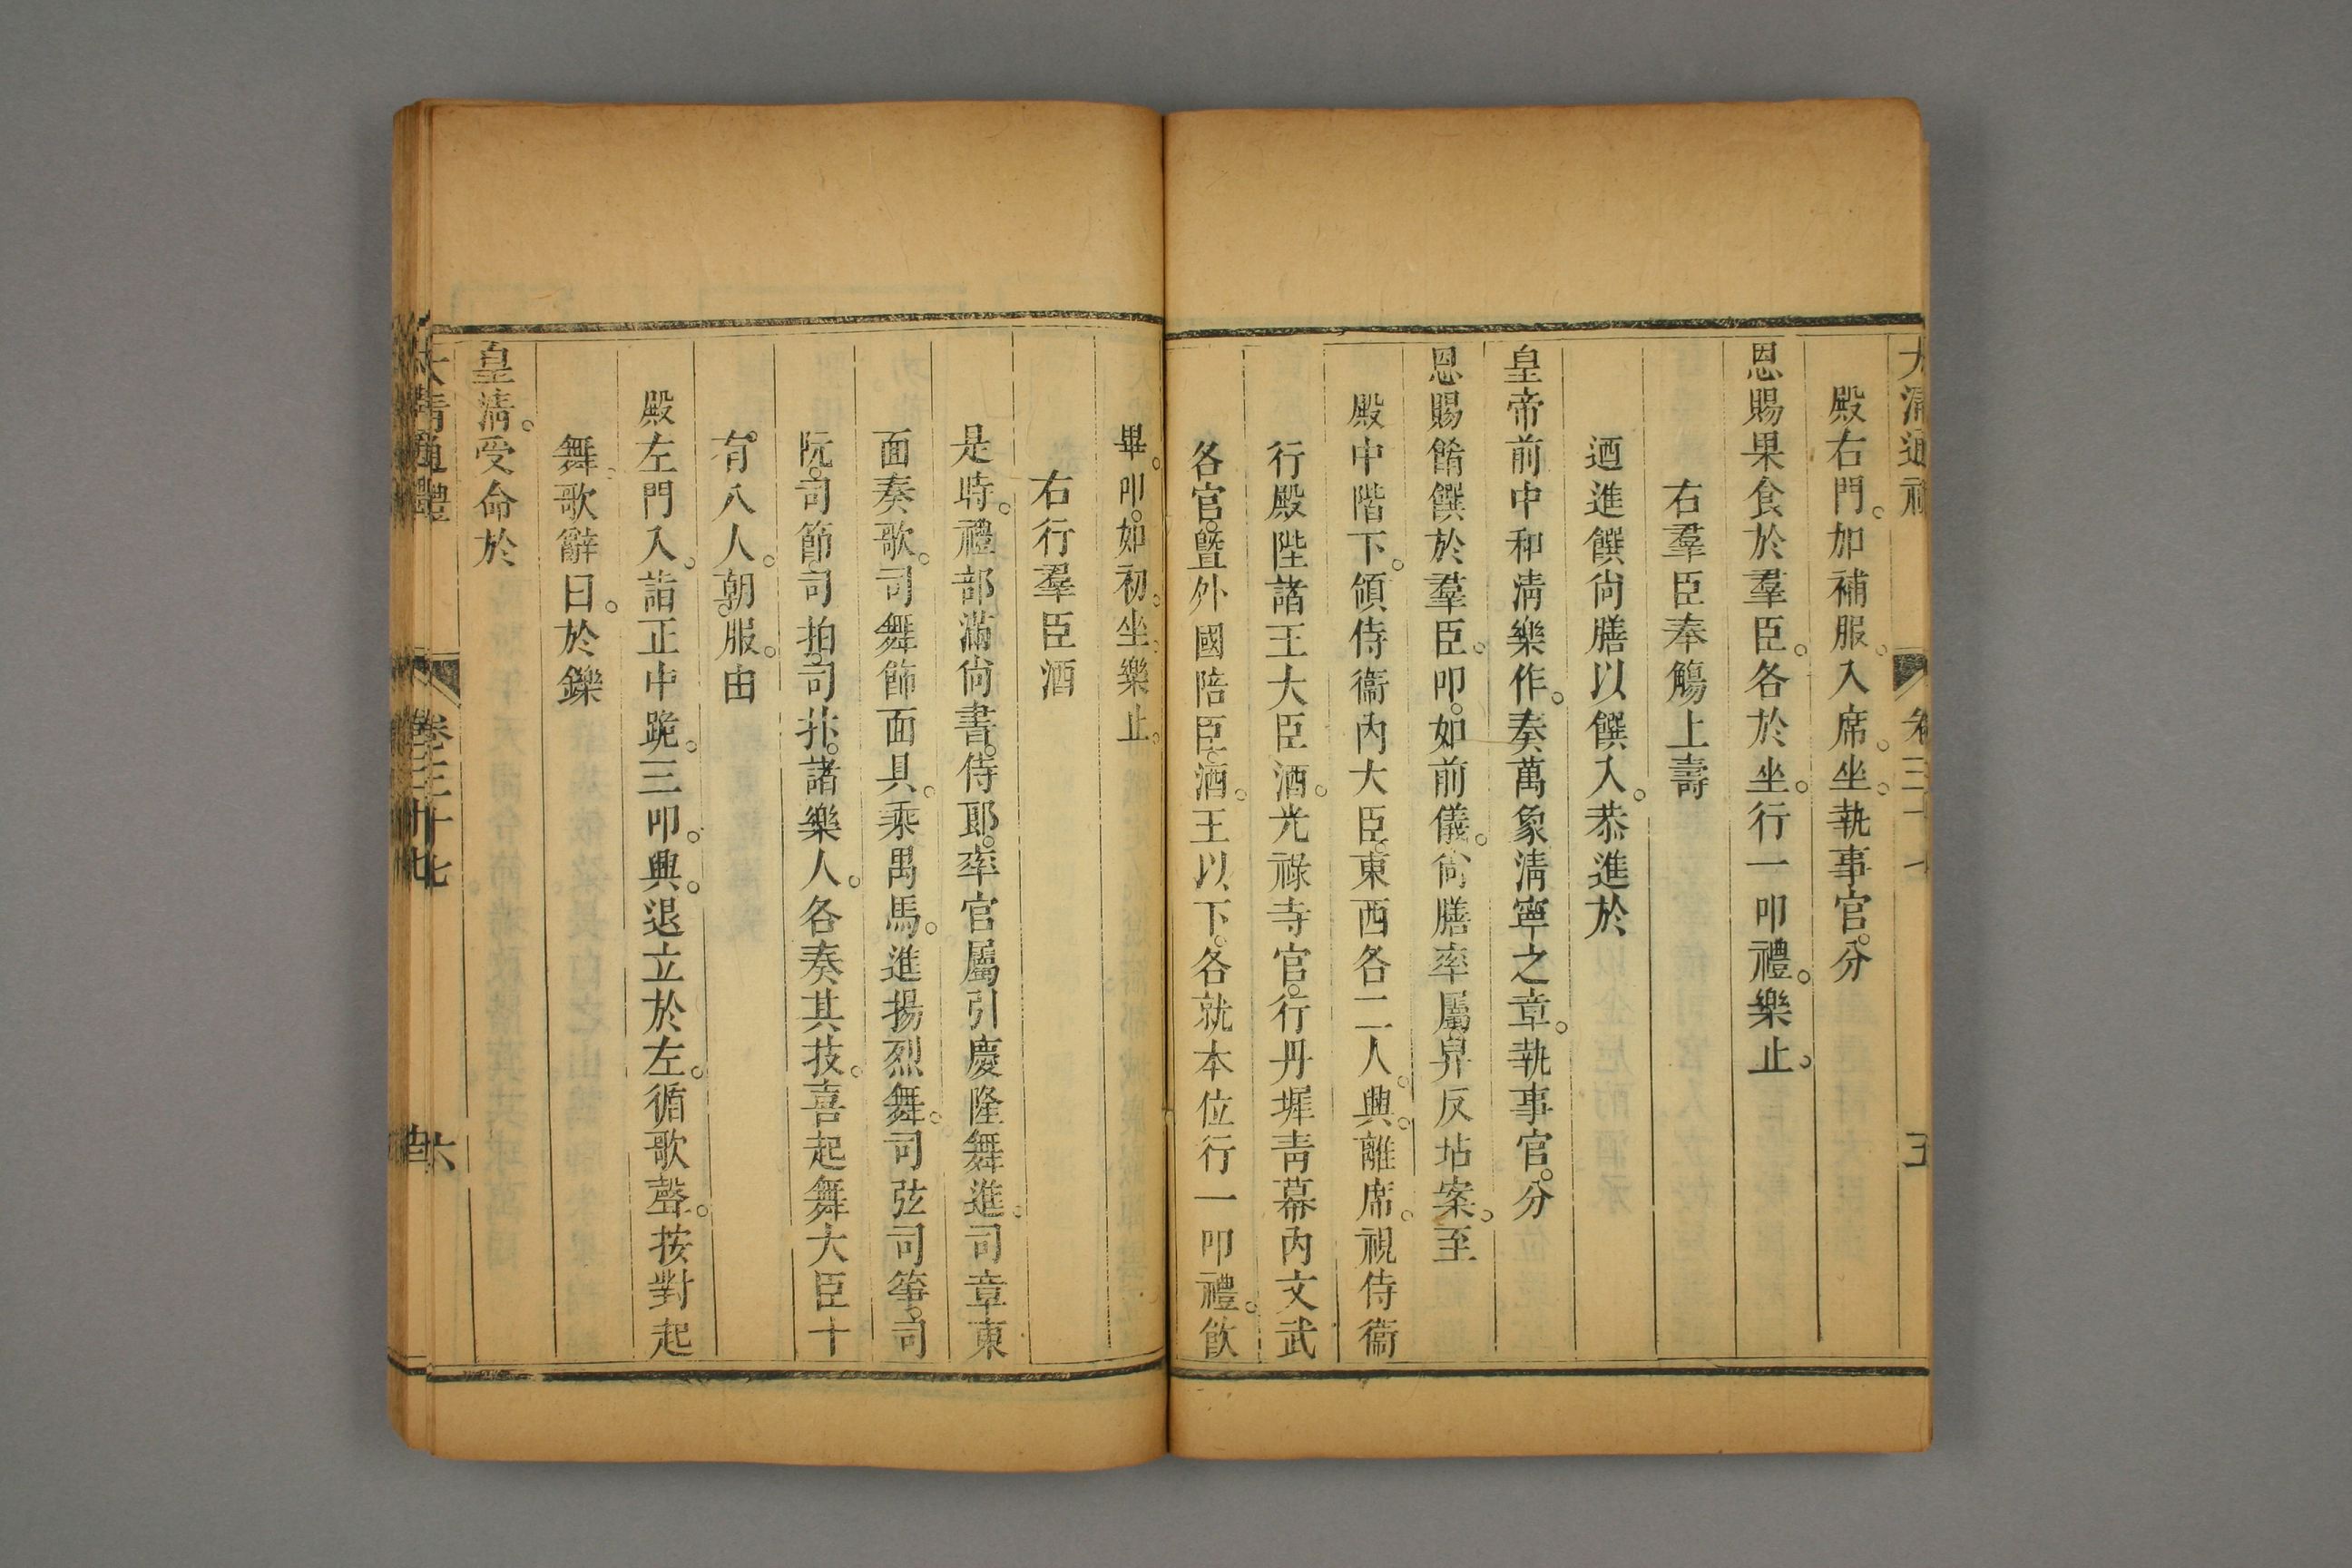 大清通禮 卷三十七 五
殿右門。加補服。入席。坐。執事官。分
恩賜果食於羣臣。各於坐。行一叩禮。樂止。
右羣臣奉觴上壽
迺進饌尚膳以饌入。恭進於
皇帝前中和清樂作。奏萬象清寧之章。執事官。分
恩賜餚饌於羣臣。叩。如前儀。尚膳率屬舁反坫案。至
殿中階下。領侍衞內大臣。東西各二人。興。離席。視侍衞
行殿陛諸王大臣酒。光祿寺官。行丹墀青幕內文武
各官。曁外國陪臣。酒。王以下。各就本位行一叩禮。飲
畢。叩。如初。坐。樂止。
右行羣臣酒
是時。禮部滿尚書。侍郎。率官屬引慶隆舞進。司章東
面奏歌。司舞飾面具。乘禺馬。進揚烈舞。司弦司箏。司
阮。司節。司拍。司抃。諸樂人。各奏其技。喜起舞大臣十
有八人。朝服。由
殿左門入。詣正中跪。三叩。興。退立於左。循歌聲。按對起
舞。歌辭曰。於鑠
皇清。受命於
大清通禮 卷三十七 六